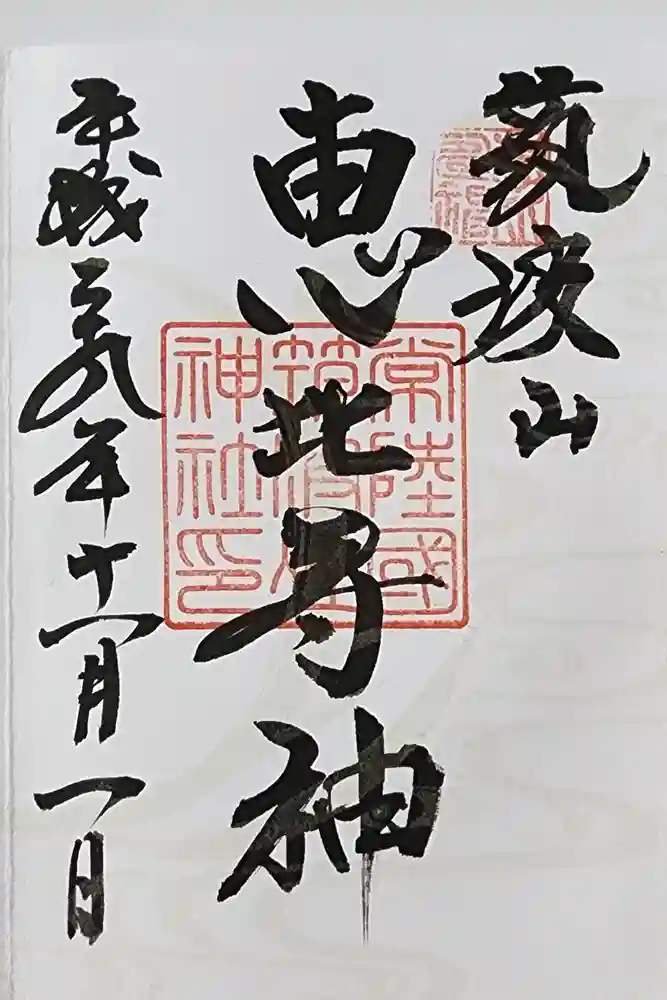 筑波山
恵比寿神
平成二九年十一月一日
常陸國
筑波山
神社印